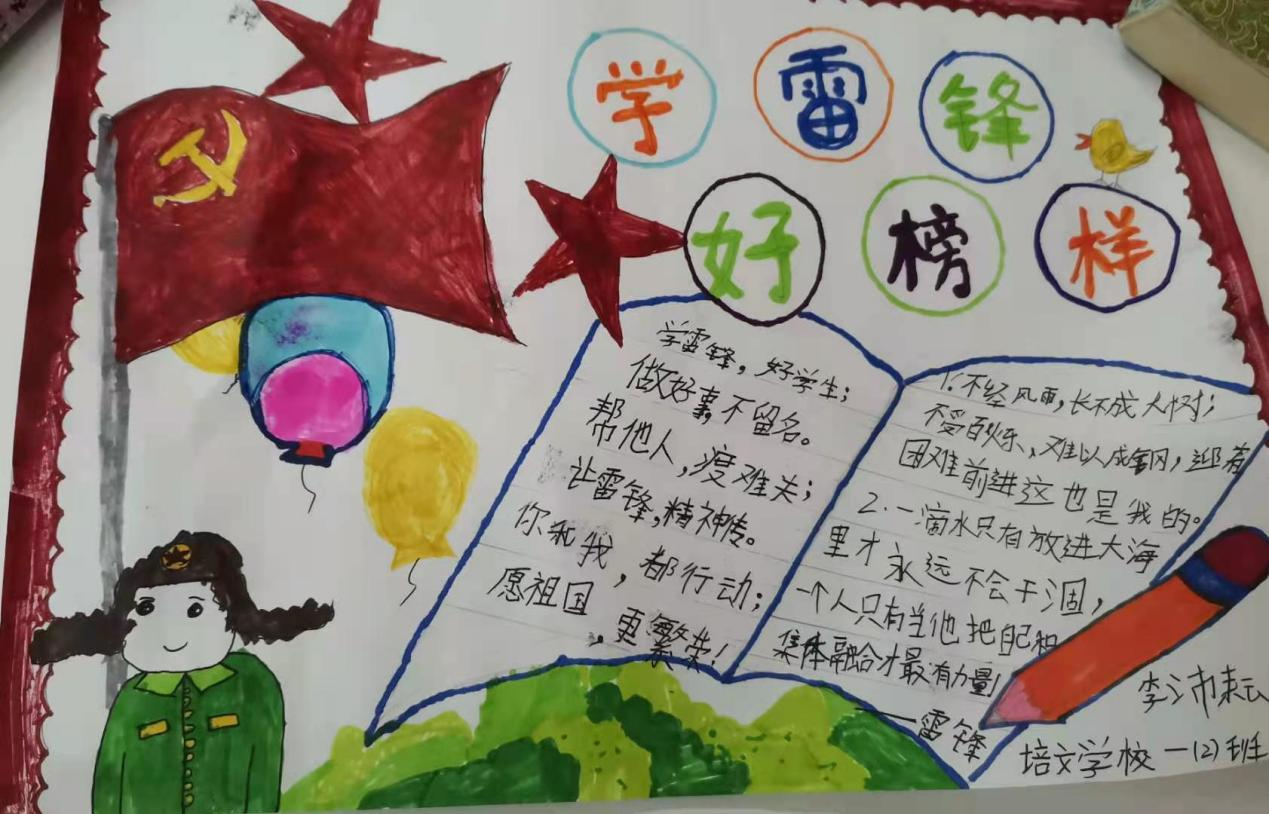 学雷锋
好榜样
学雷锋，好学生；
做好事，不留名。
帮他人，渡难关；
让雷锋，精神传。
你和我，都行动；
愿祖国，更繁荣！
1.不经风雨，长不成大树；
不受百炼、难以成钢，迎着
困难前进这也是我的。
2.一滴水只有放进大海
里才永远不会干涸，
一个人只有当他把自己和
集体融合才最有力量！
——雷锋
李
培文学校一(2)班